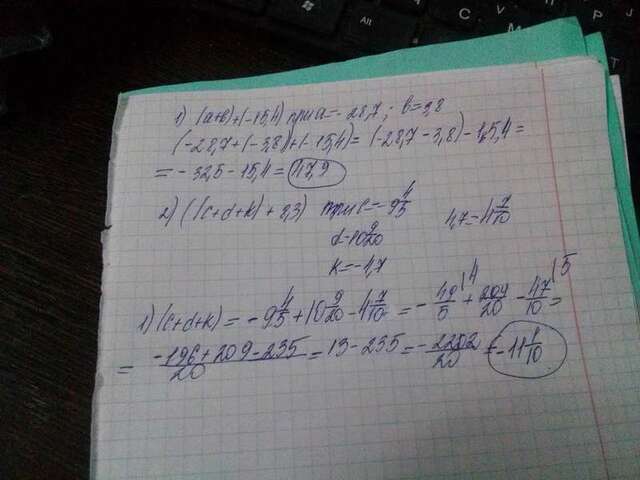 1) (a+b)+(-15,4) при a=-28,7; b=3,8
(-28,7+(-3,8)+(-15,4)=(-28,7-3,8)-15,4=
=-32,5-15,4=47,9
2) ((c+d+k)+3,3) при c=-9 4/5
d=10 9/20
k=-4,7
4,7=4 7/10
1) (c+d+k)=-9 4/5+10 9/20-4 7/10=-49/5 |4+209/20-47/10 |5=
=-196+209-235/20=13-235=-2202/20=-11 1/10